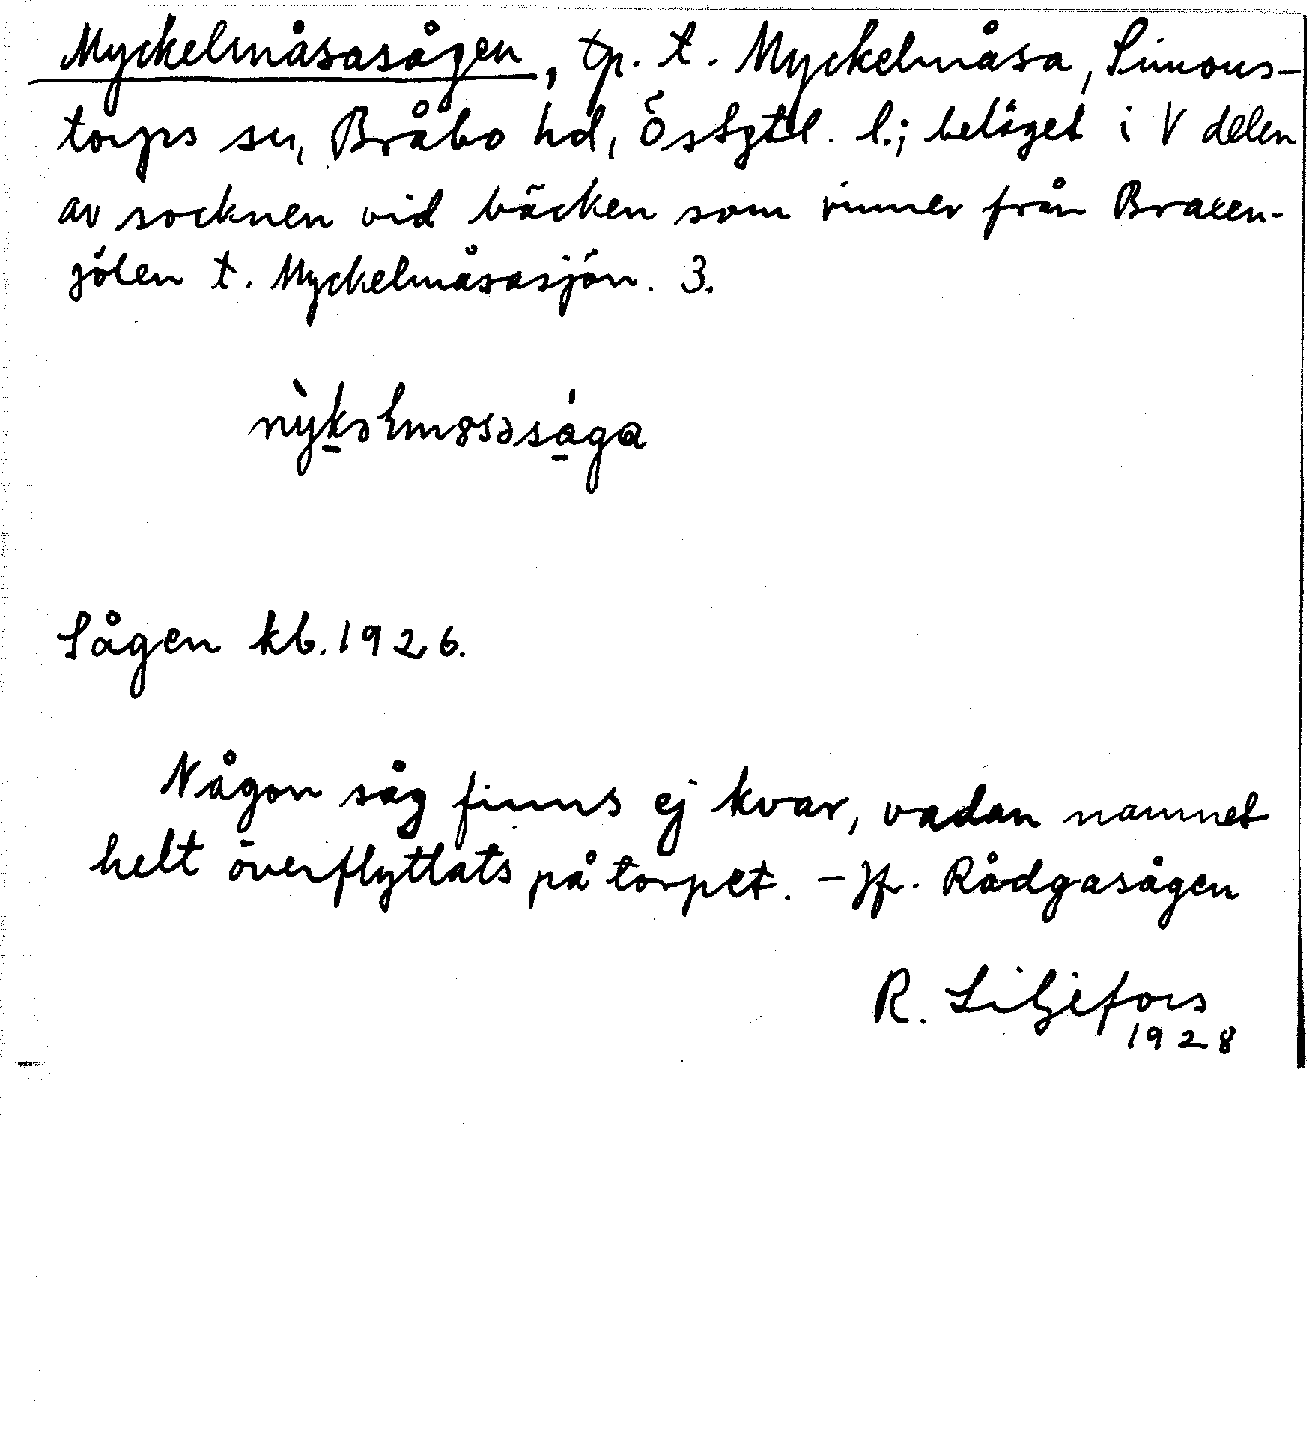 Myckelmåsasågen, tp. t. Myckelmåsa, Simons-
torps sn, Bråbo hd, Östgtl. l.; beläget i V delen
av socknen vid bäcken som rinner från Braxen-
gölen t. Myckelmåsasjön. 3.
Sågen kb. 1926.
Någon såg finns ej kvar, vadan namnet
helt överflyttats på torpet. – Jfr. Rådgasågen
R. Liljefors
1928